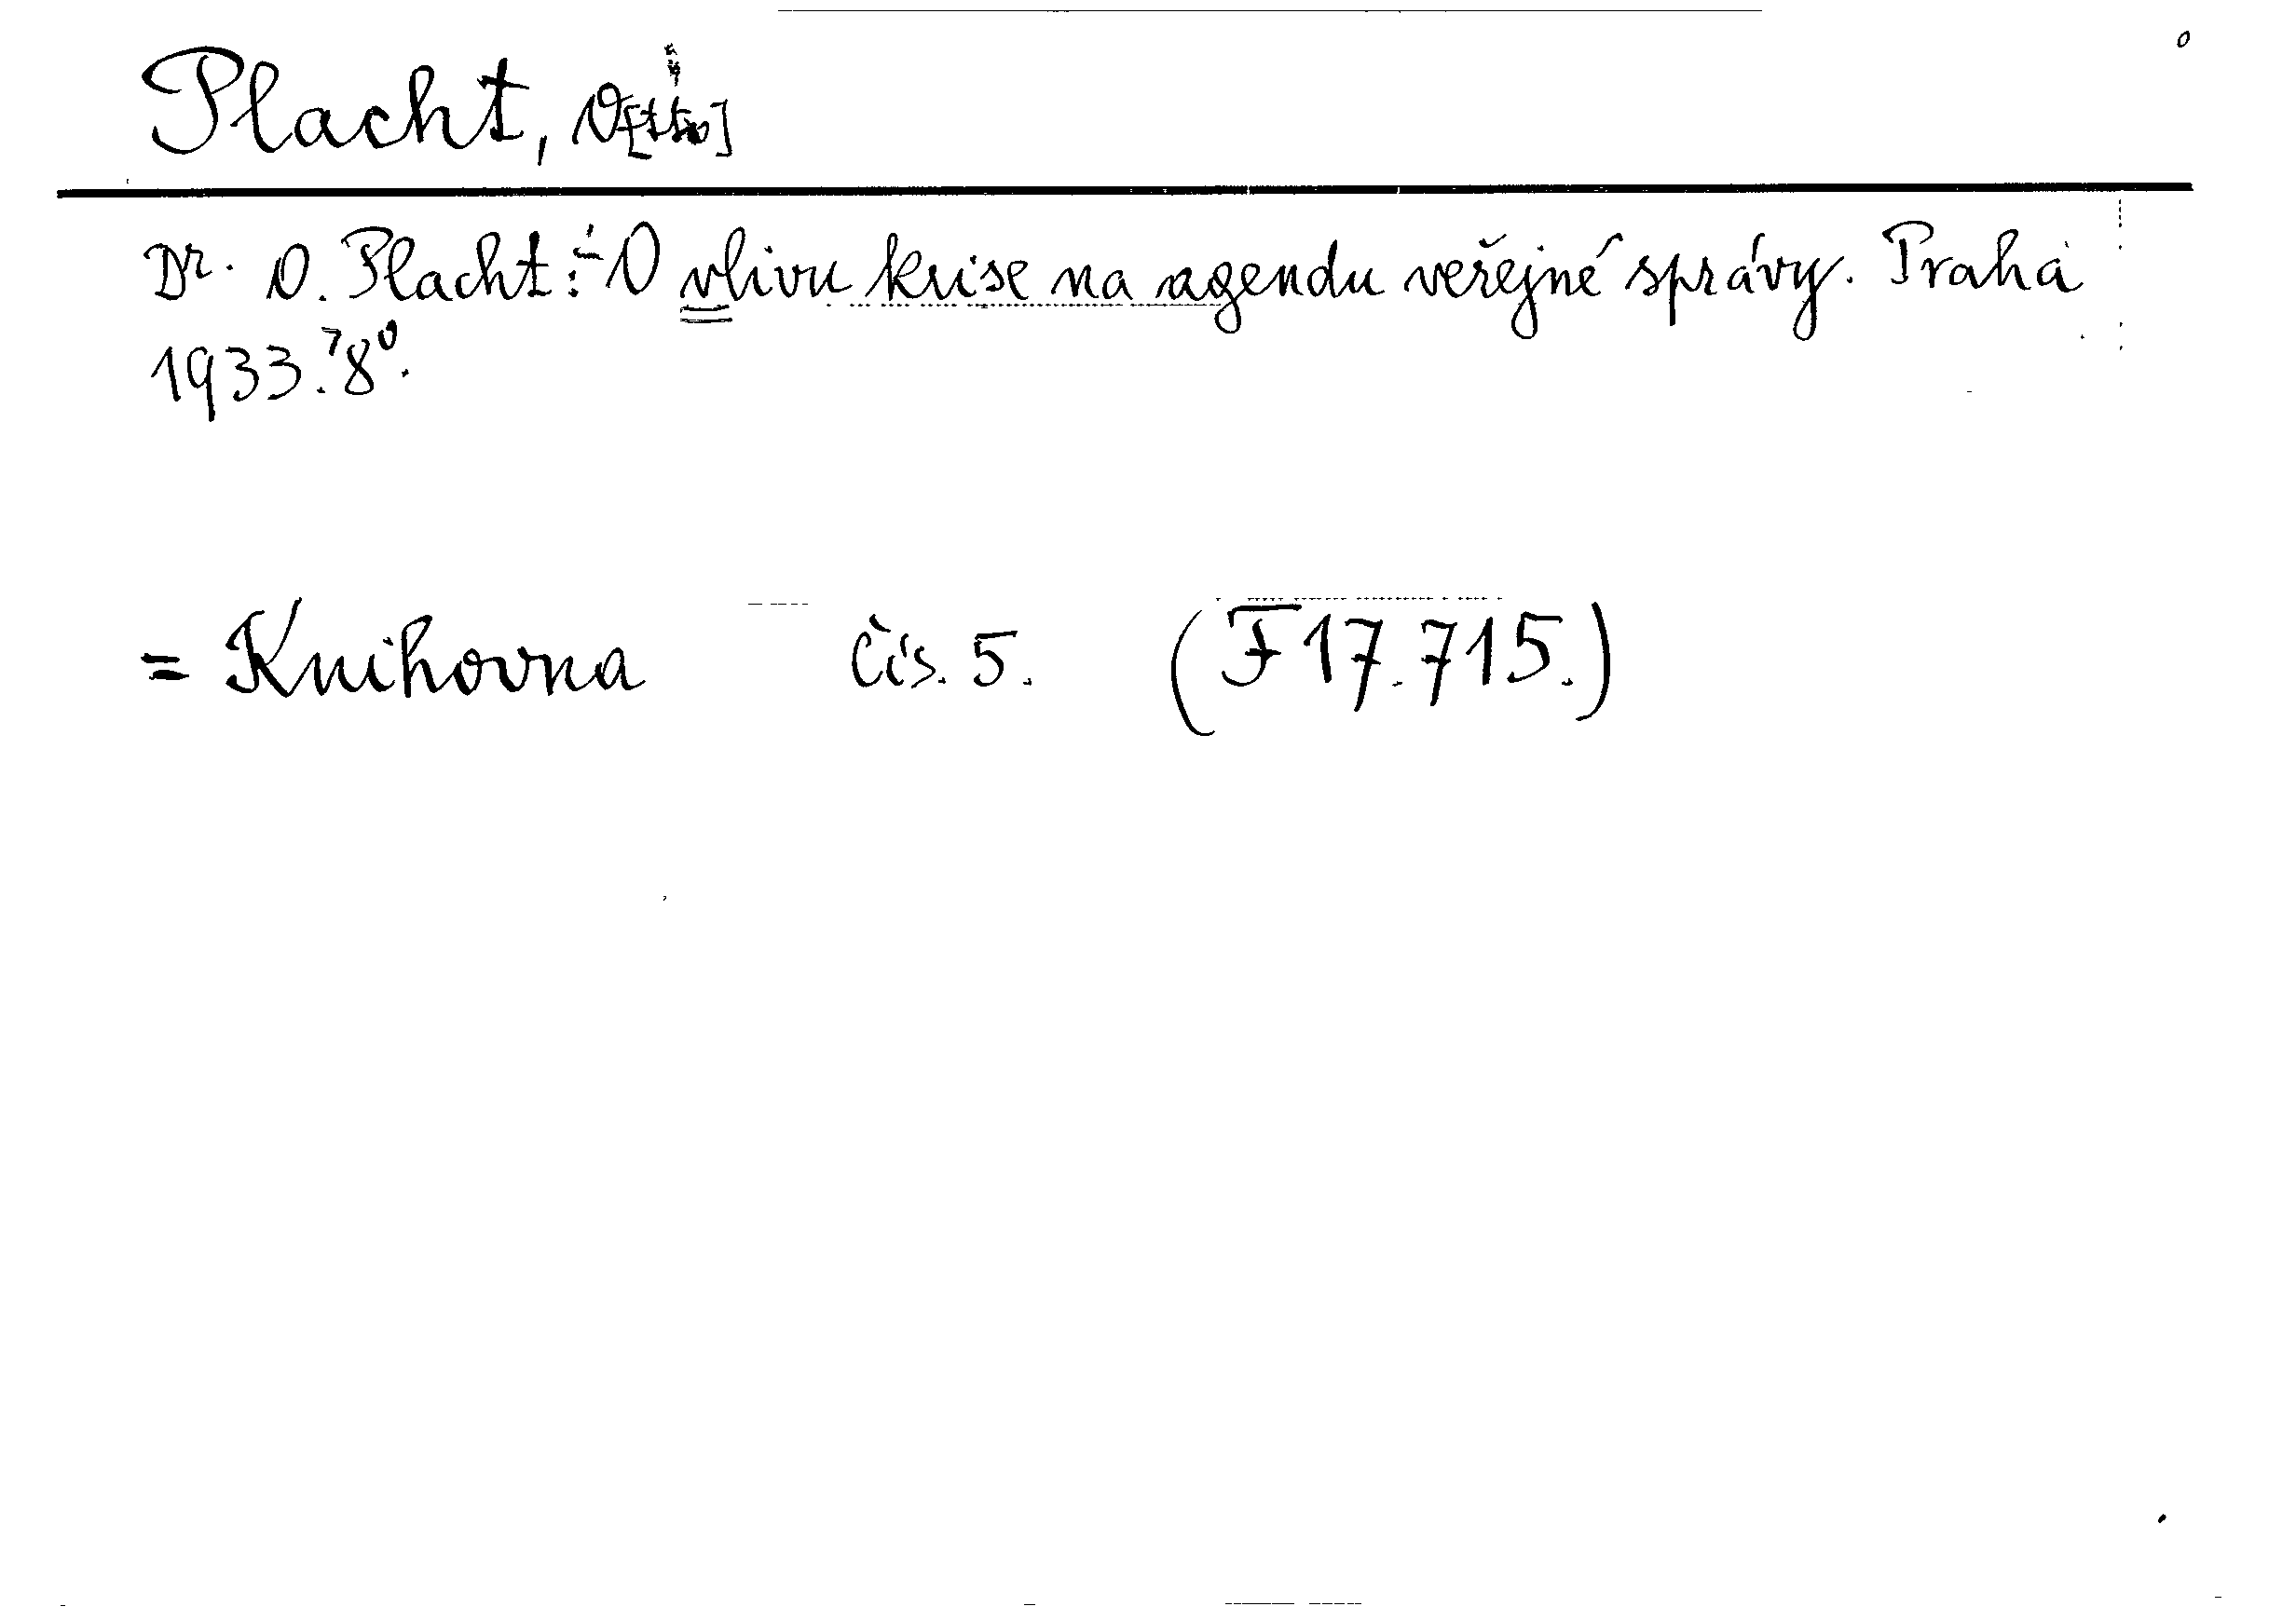 Placht, O[tto]
Dr. O. Placht: O vlivu krise na agendu veřejné správy. Praha
1933. 8°.
= Knihovna čís. 5. (F 17.715.)